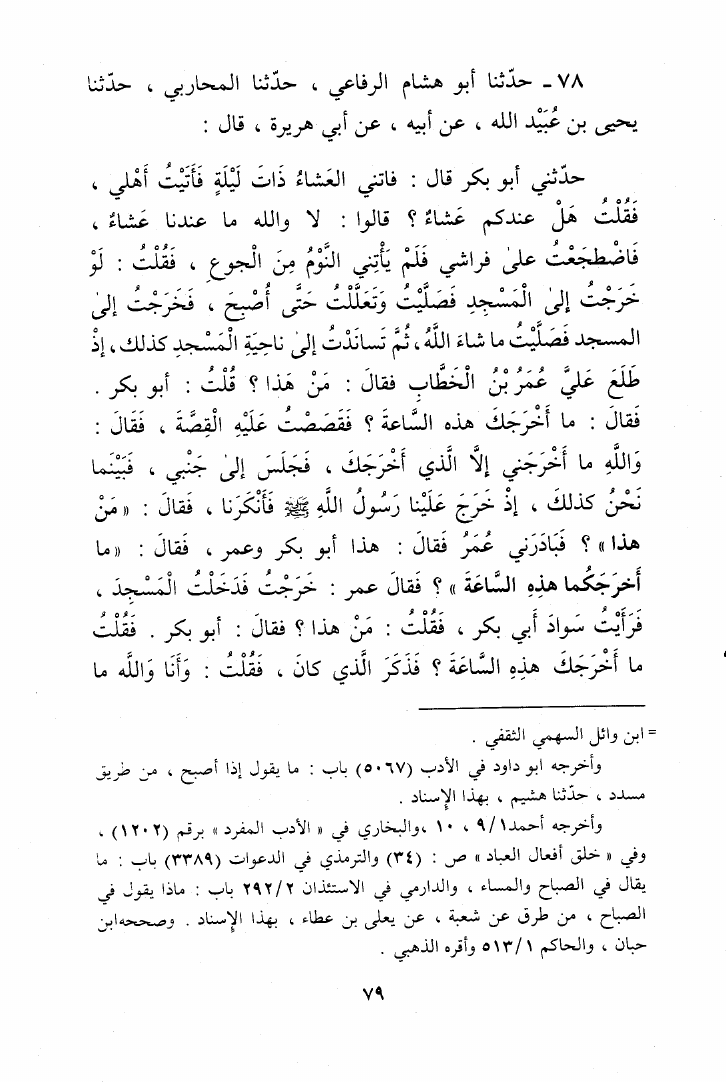 ٧٨ ـ حدّثنا أبو هشام الرفاعي ، حدّثنا المحاربي ، حدّثنا
يحيى بن عُبَيْد الله ، عن أبيه ، عن أبي هريرة ، قال :
حدّثني أبو بكر قال : فاتني العَشاءُ ذَاتَ لَيْلَةٍ فَأَتَيْتُ أَهْلي ،
فَقُلْتُ هَلْ عندكم عَشاءٌ ؟ قالوا : لا والله ما عندنا عَشاءٌ ،
فَاضْطَجَعْتُ علىٰ فراشي فَلَمْ يَأْتِني النَّوْمُ مِنَ الْجوعِ ، فَقُلْتُ : لَوْ
خَرَجْتُ إلىٰ الْمَسْجِدِ فَصَلَّيْتُ وَتَعَلَّلْتُ حَتَّى أُصْبِحَ ، فَخَرَجْتُ إلىٰ
المسجد فَصَلَّيْتُ ما شاءَ اللَّهُ ، ثُمَّ تَسانَدْتُ إلىٰ ناحِيَةِ الْمَسْجدِ كذلك ، إذْ
طَلَعَ عَلَيَّ عُمَرُ بْنُ الْخَطَّابِ فقالَ : مَنْ هَذا ؟ قُلْتُ : أبو بكر .
فَقالَ : ما أَخْرَجَكَ هذه السَّاعةَ ؟ فَقَصَصْتُ عَلَيْهِ الْقِصَّةَ ، فَقالَ :
وَاللَّهِ ما أَخْرَجَني إلَّا الَّذي أَخْرَجَكَ ، فَجَلَسَ إلىٰ جَنْبي ، فَبَيْنَما
نَحْنُ كذلكَ ، إذْ خَرَجَ عَلَيْنا رَسُولُ اللَّهِ ﷺ فَأَنْكَرَنا ، فَقالَ : «مَنْ
هذا» ؟ فَبَادَرَني عُمَرُ فَقالَ : هذا أبو بكر وعمر ، فَقالَ : «ما
أَخرَجَكُما هذِهِ السَّاعَةَ » ؟ فَقالَ عمر : خَرَجْتُ فَدَخَلْتُ الْمَسْجِدَ ،
فَرَأَيْتُ سَوادَ أَبي بكر ، فَقُلْتُ : مَنْ هذا ؟ فقالَ : أبو بكر . فَقُلْتُ
ما أَخْرَجَكَ هذِهِ السَّاعَةَ ؟ فَذَكَرَ الَّذي كانَ ، فَقُلْتُ : وَأَنَا وَاللَّه ما
= ابن وائل السهمي الثقفي .
وأخرجه ابو داود في الأدب (٥٠٦٧) باب : ما يقول إذا أصبح ، من طريق
مسدد ، حدّثنا هشيم ، بهذا الإِسناد .
وأخرجه أحمد ٩/١ ، ١٠ ، والبخاري في « الأدب المفرد » برقم (١٢٠٢) ،
وفي « خلق أفعال العباد » ص : (٣٤) والترمذي في الدعوات (٣٣٨٩) باب : ما
يقال في الصباح والمساء ، والدارمي في الاستئذان ٢٩٢/٢ باب : ماذا يقول في
الصباح ، من طرق عن شعبة ، عن يعلى بن عطاء ، بهذا الإِسناد . وصححه ابن
حبان ، والحاكم ٥١٣/١ وأقره الذهبي .
٧٩